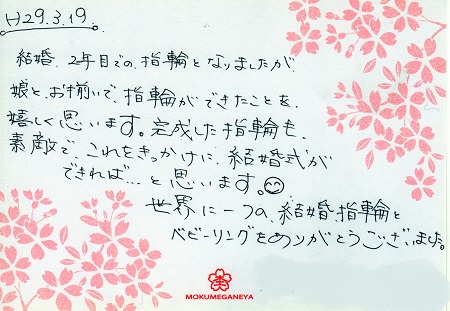 H29.3.19.
結婚、2年目での、指輪となりましたが、
娘と、お揃いで、指輪ができたことを、
嬉しく思います。完成した指輪も、
素敵で、これをきっかけに、結婚式が
できれば…と思います。
世界に一つの、結婚指輪と
ベビーリングをありがとうございました。
MOKUMEGANEYA